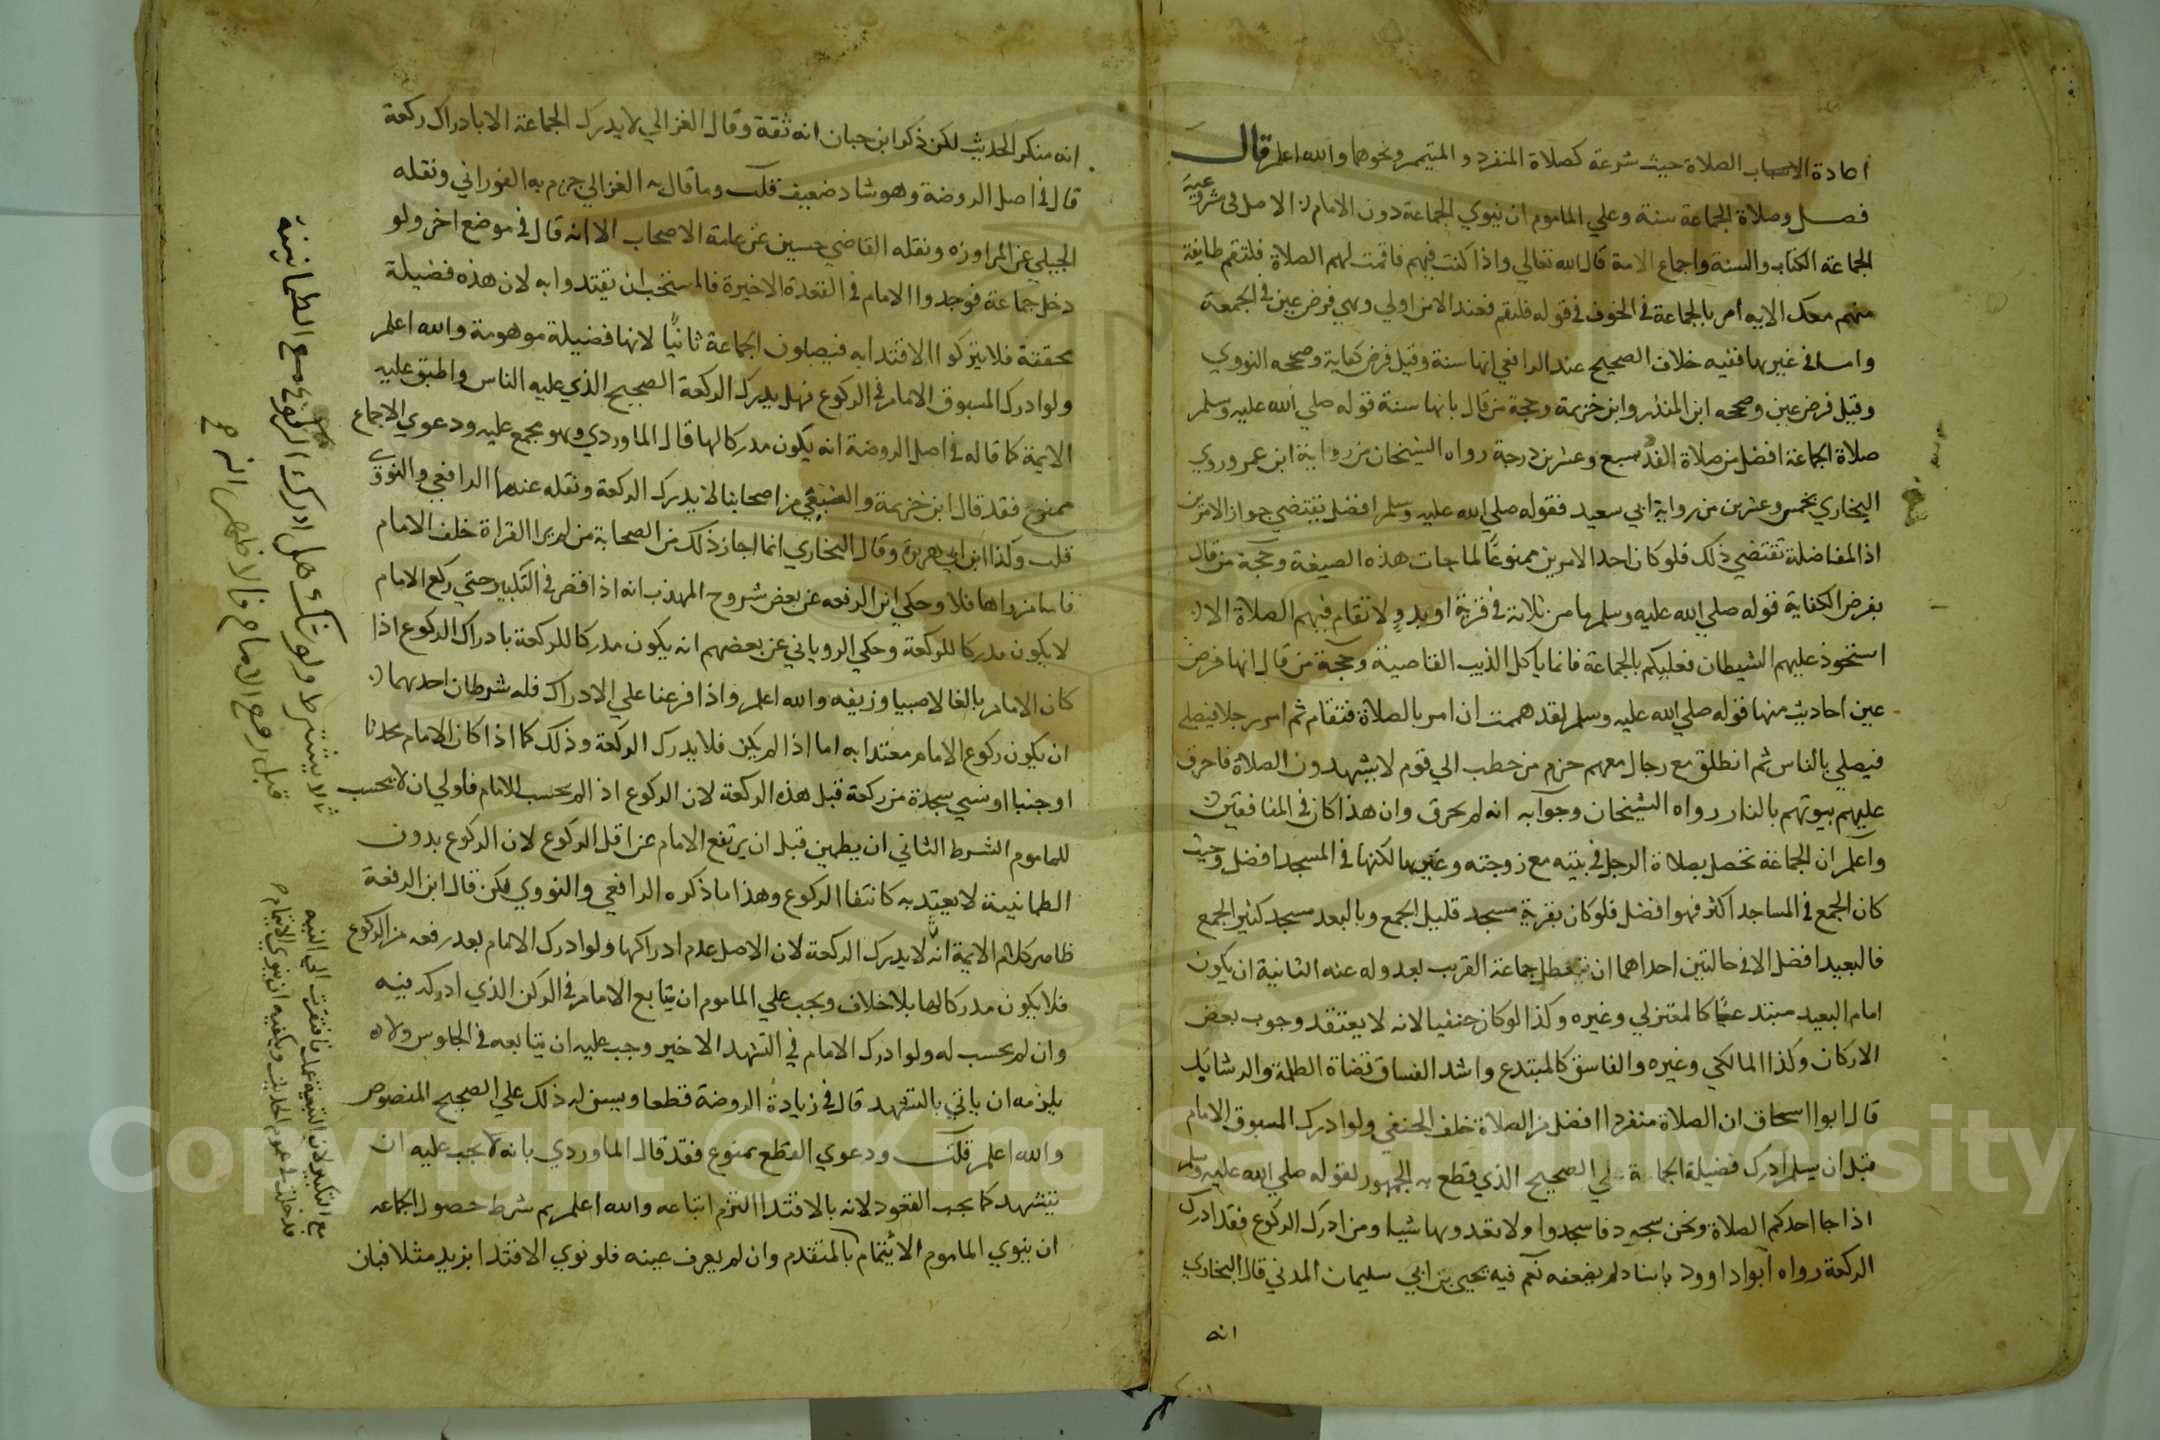 اعادة الاصحاب الصلاة حيث شرعة كصلاة المنفرد والمتيمم ونحوهما والله اعلم قال
فصل وصلاة الجماعة سنة وعلي الماموم ان ينوي الجماعة دون الامام الاصل في مشروعية
الجماعة الكتاب والسنة واجماع الامة قال الله تعالي واذا كنت فيهم فاقمت لهم الصلاة فلتقم طايفة
منهم معك الايه امر بالجماعة في الخوف في قوله فلتقم فعند الامن اولي وهي فرض عين في الجمعة
واما في غيرها ففيه خلاف الصحيح عند الرافعي انها سنة وقيل فرض كفاية وصححه النووي
وقيل فرض عين وصححه ابن المنذر وابن خزيمة وحجة من قال بانها سنة قوله صلي الله عليه وسلم
صلاة الجماعة افضل من صلاة الفذ بسبع وعشرين درجة رواه الشيخان من رواية ابن عمر وروي
البخاري بخمس وعشرين من رواية ابي سعيد فقوله صلي الله عليه وسلم افضل يقتضي جواز الامرين
اذ المفاضلة تقتضي ذلك فلو كان احد الامرين ممنوعا لما جات هذه الصيغة وحجة من قال
بفرض الكفاية قوله صلي الله عليه وسلم ما من ثلاثة في قرية او بدو لا تقام فيهم الصلاة الا
استحوذ عليهم الشيطان فعليكم بالجماعة فانما ياكل الذيب القاصية وحجة من قال انها فرض
عين احاديث منها قوله صلي الله عليه وسلم لقد هممت ان امر بالصلاة فتقام ثم امر رجلا فيصلي
فيصلي بالناس ثم انطلق مع رجال معهم حزم من حطب الي قوم لا يشهدون الصلاة فاحرق
عليهم بيوتهم بالنار رواه الشيخان وجوابه انه لم يحرق وان هذا كان في المنافقين
واعلم ان الجماعة تحصل بصلاة الرجل في بيته مع زوجته وغيرها لكنها في المسجد افضل وحيث
كان الجمع في المساجد اكثر فهو افضل فلو كان بقربه مسجد قليل الجمع وبالبعد مسجد كثير الجمع
فالبعيد افضل الا في حالتين احداهما ان تتعطل جماعة القريب بعدوله عنه الثانية ان يكون
امام البعيد مبتدعا كالمعتزلي وغيره وكذا لو كان حنفيا لانه لا يعتقد وجوب بعض
الاركان وكذا المالكي وغيره والفاسق كالمبتدع واشد الفساق قضاة الظلمة والرشا بل
قال ابو اسحاق ان الصلاة منفردا افضل من الصلاة خلف الحنفي ولو ادرك المسبوق الامام
قبل ان يسلم ادرك فضيلة الجماعة علي الصحيح الذي قطع به الجمهور لقوله صلي الله عليه وسلم
اذا جا احدكم الصلاة ونحن سجود فاسجدوا ولا تعدوها شيا ومن ادرك الركوع فقد ادرك
الركعة رواه ابو داوود باسناد لم يضعفه نعم فيه يحيي بن ابي سليمان المدني قال البخاري
انه
انه منكر الحديث لكن ذكر ابن حبان انه ثقة وقال الغزالي لا يدرك الجماعة الا بادراك ركعة
قال في اصل الروضة وهو شاذ ضعيف قلت وما قال به الغزالي جزم به الفوراني ونقله
الجيلي عن المراوزة ونقله القاضي حسين عن عامة الاصحاب الا انه قال في موضع اخر ولو
دخل جماعة فوجدوا الامام في القعدة الاخيرة فالمستحب ان يقتدوا به لان هذه فضيلة
محققة فلا يتركوا الاقتدا به فيصلون الجماعة ثانيا لانها فضيلة موهومة والله اعلم
ولو ادرك المسبوق الامام في الركوع فهل يدرك الركعة الصحيح الذي عليه الناس واطبق عليه
الايمة كما قاله في اصل الروضة انه يكون مدركا لها قال الماوردي وهو مجمع عليه ودعوي الاجماع
ممنوع فقد قال ابن خزيمة والضبعي من اصحابنا لا يدرك الركعة ونقله عنهما الرافعي والنووي
قلت وكذا ابن ابي هريرة وقال البخاري انما اجاز ذلك من الصحابة من لم ير القراة خلف الامام
فاما من راها فلا وحكي ابن الرفعه عن بعض شروح المهذب انه اذا قصر في التكبير حتي ركع الامام
لا يكون مدركا للركعة وحكي الروياني عن بعضهم انه يكون مدركا للركعة بادراك الركوع اذا
كان الامام بالغا لا صبيا وزيفه والله اعلم واذا فرعنا علي الادراك فله شرطان احدهما
ان يكون ركوع الامام معتدا به اما اذا لم يكن فلا يدرك الركعة وذلك كما اذا كان الامام محدثا
او جنبا او نسي سجدة من ركعة قبل هذه الركعة لان الركوع اذا لم يحسب للامام فاولي ان لا يحسب
للماموم الشرط الثاني ان يطمين قبل ان يرتفع الامام عن اقل الركوع لان الركوع بدون
الطمانينة لا يعتد به كانتفا الركوع وهذا ما ذكره الرافعي والنووي لكن قال ابن الرفعة
ظاهر كلام الايمة انه لا يدرك الركعة لان الاصل عدم ادراكها ولو ادرك الامام بعد رفعه من الركوع
فلا يكون مدركا لها بلا خلاف ويجب علي الماموم ان يتابع الامام في الركن الذي ادركه فيه
وان لم يحسب له ولو ادرك الامام في التشهد الاخير وجب عليه ان يتابعه في الجلوس ولا
يلزمه ان ياتي بالتشهد قال في زيادة الروضة قطعا ويسن له ذلك علي الصحيح المنصوص
والله اعلم قلت ودعوي القطع ممنوع فقد قال الماوردي بانه يجب عليه ان
يتشهد كما يجب القعود لانه بالاقتدا التزم اتباعه والله اعلم ثم شرط حصول الجماعة
ان ينوي الماموم الائتمام بالمتقدم وان لم يعرف عينه فلو نوي الاقتدا بزيد مثلا فبان
لا يشترط ولو شك هل ادرك الركوع مع الطمانينة
قبل رفع الامام فالاظهر انه
مع التكبير لان التبعية عمل فافتقرت الي النية
Copyright © King Saud University